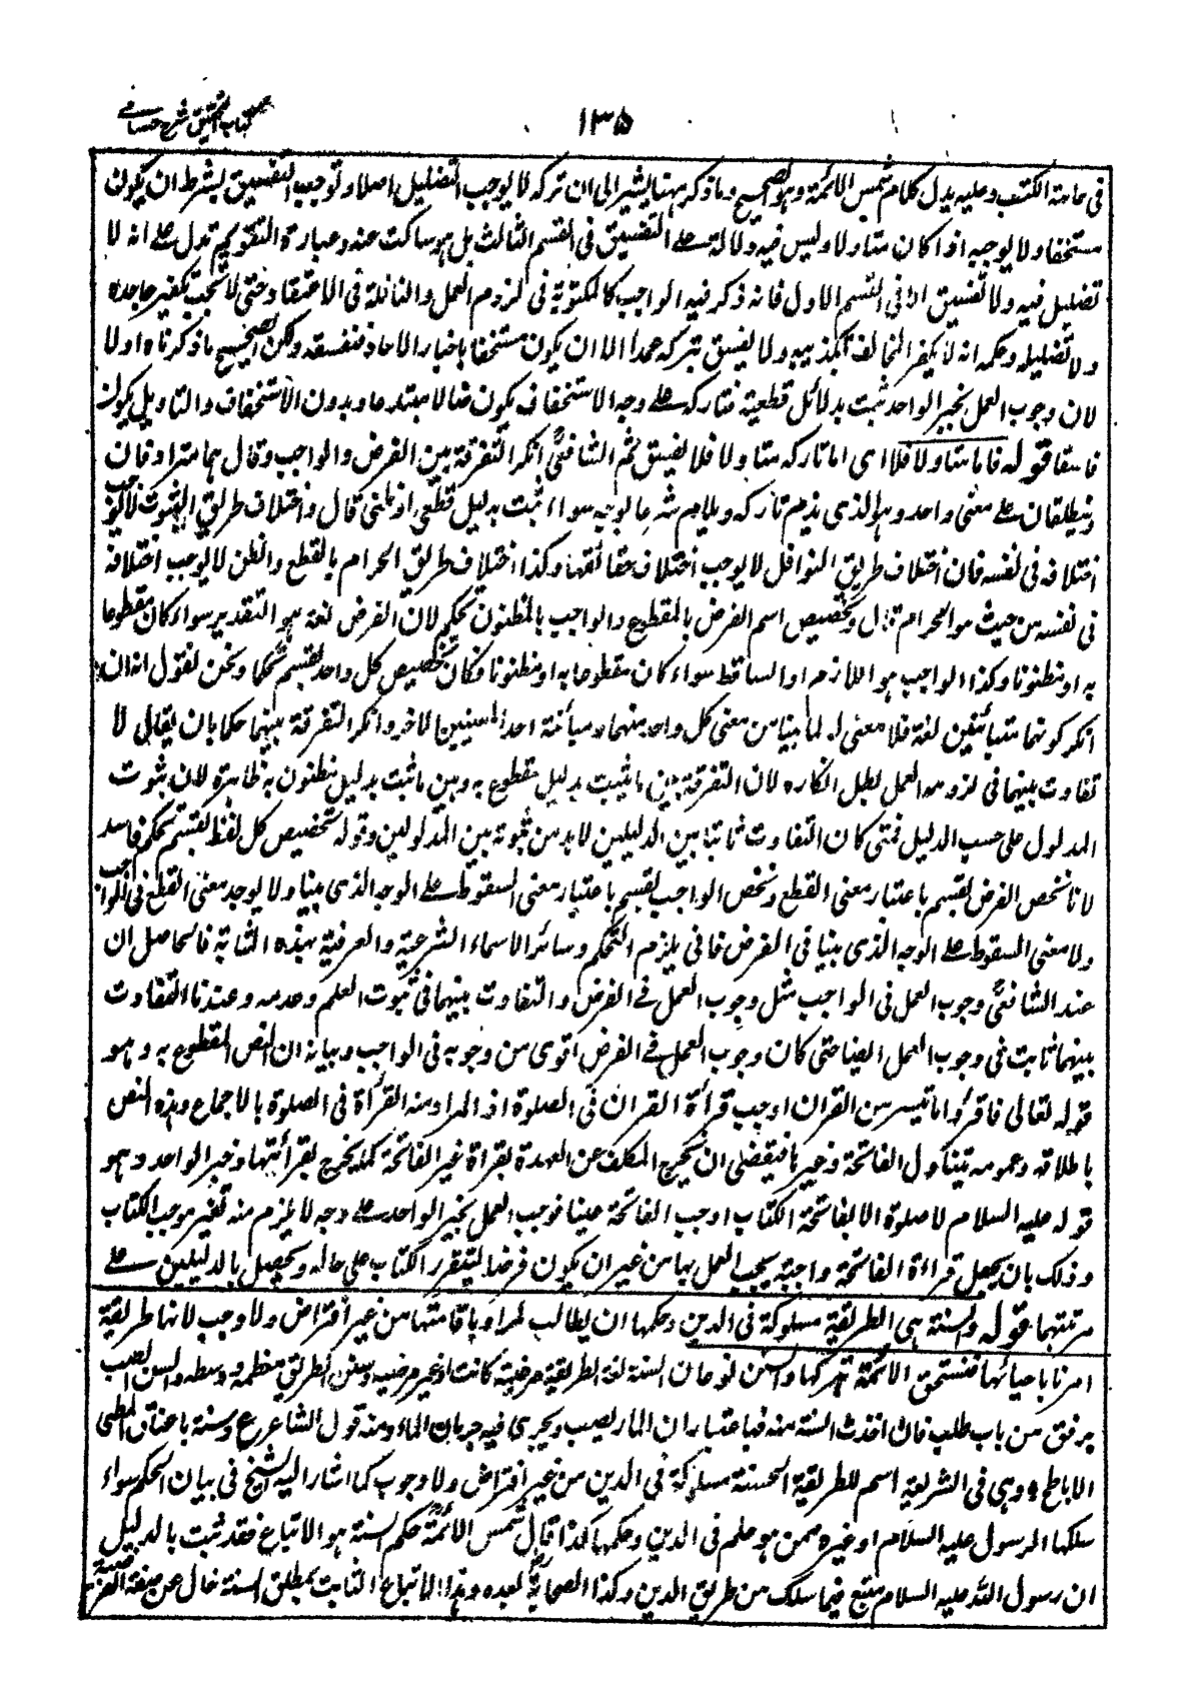 كتاب التحقيق شرح حسامى
١٣٥
فى عامة الكتب وعليه يدل كلام شمس الائمة وهو الصحيح وما ذكر ههنا يشير الى ان تركه لا يوجب التضليل اصلا ولا يوجب التفسيق بشرط ان يكون
مستخفا ولا يوجبه اذا كان متاولا وليس فيه دلالة على التفسيق فى القسم الثالث بل هو ساكت عنه وعبارة التقويم تدل على انه لا
تضليل فيه ولا تفسيق اذا فى القسم الاول فانه ذكر فيه الواجب كالمكتوبة فى لزوم العمل والنافلة فى الاعتقاد حتى لا يجب تكفير جاحده
ولا تضليله وحكمه انه لا يكفر المخالف بتكذيبه ولا يفسق بتركه عمدا الا ان يكون مستخفا باخبار الاحاد فنفسقه ولكن الصحيح ما ذكرناه اولا
لان وجوب العمل بخبر الواحد ثبت بدلائل قطعية فتاركه على وجه الاستخفاف يكون ضالا مبتدعا وبدون الاستخفاف والتاويل يكون
فاسقا قوله فاما متاولا فلا اى اما تاركه متاولا فلا يفسق ثم الشافعى انكر التفرقة بين الفرض والواجب وقال هما مترادفان
وينطلقان على معنى واحد وهو الذى يذم تاركه ويلام شرعا بوجه سواء ثبت بدليل قطعى او ظنى قال واختلاف طريق الثبوت لا يوجب
اختلافه فى نفسه فان اختلاف طريق النوافل لا يوجب اختلاف حقائقها وكذا اختلاف طريق الحرام بالقطع والظن لا يوجب اختلافه
فى نفسه من حيث هو الحرام قال وتخصيص اسم الفرض بالمقطوع والواجب بالمظنون تحكم لان الفرض لغة هو التقدير سواء كان مقطوعا
به او مظنونا وكذا الواجب هو اللازم او الساقط سواء كان مقطوعا به او مظنونا فكان تخصيص كل واحد بقسم تحكما ونحن نقول انه ان
انكر كونهما متبائنين لغة فلا معنى له لما بينا من معنى كل واحد منهما ومبائنة احد المعنيين للاخر وانكر التفرقة بينهما حكما بان يقال لا
تفاوت بينهما فى لزوم العمل بطل انكاره لان التفرقة بين ما ثبت بدليل مقطوع به وبين ما ثبت بدليل مظنون به ظاهرة لان ثبوت
المدلول على حسب الدليل فمتى كان التفاوت ثابتا بين الدليلين لا بد من ثبوته بين المدلولين وقوله تخصيص كل لفظ بقسم تحكم فاسد
لانا نخص الفرض بقسم باعتبار معنى القطع ونخص الواجب بقسم باعتبار معنى السقوط على الوجه الذى بينا ولا يوجد معنى القطع فى الواجب
ولا معنى السقوط على الوجه الذى بينا فى الفرض فانى يلزم التحكم وسائر الاسماء الشرعية والعرفية بهذه المثابة فالحاصل ان
عند الشافعى وجوب العمل فى الواجب مثل وجوب العمل فى الفرض والتفاوت بينهما فى ثبوت العلم وعدمه وعندنا التفاوت
بينهما ثابت فى وجوب العمل ايضا حتى كان وجوب العمل فى الفرض اقوى من وجوبه فى الواجب وبيانه ان النص المقطوع به وهو
قوله تعالى فاقرؤا ما تيسر من القران اوجب قرأة القران فى الصلوة اذ المراد منه القرأة فى الصلوة بالاجماع وهذه النص
باطلاقه وعمومه يتناول الفاتحة وغيرها فيقتضى ان يخرج المكلف عن العهدة بقراة غير الفاتحة كما يخرج بقرأتها وخبر الواحد وهو
قوله عليه السلام لا صلوة الا بفاتحة الكتاب اوجب الفاتحة عينا فوجب العمل بخبر الواحد على وجه لا يلزم منه تغير موجب الكتاب
وذلك بان يجعل قراءة الفاتحة واجبة يجب العمل بها من غير ان يكون فرضا ليتقرر الكتاب على حاله ويحصل بالدليلين على
مرتبتهما قوله والسنة هى الطريقة مسلوكة فى الدين وحكمها ان يطالب المرأ باقامتها من غير افتراض ولا وجوب لانها طريقة
امرنا باحيائها فنستحق الائمة بتركها والسنن نوعان السنة لغة الطريقة مرضية كانت او غير مرضية وسنن الطريق معظمه ووسطه والسنن الصب
برفق من باب طلب فان اخذت السنة منه فباعتبار ان المار يصب ويجرى فيه جريان الماء ومنه قول الشاعر ع وسنة باعناق المطى
الاباطح ٥ وهى فى الشريعة اسم للطريقة الحسنة مسلوكة فى الدين من غير افتراض ولا وجوب كما اشار اليه الشيخ فى بيان الحكم سواء
سلكها الرسول عليه السلام او غيره ممن هو علم فى الدين وحكمها كذا قال شمس الائمة حكم السنة هو الاتباع فقد ثبت بالدليل
ان رسول الله عليه السلام متبع فيما سلك من طريق الدين وكذا الصحابة بعده وهذا الاتباع الثابت بمطلق السنة خال عن صفة الفرضية